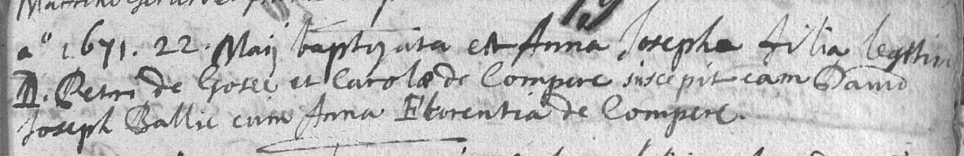 a° 1671. 22. Maij baptizata est Anna Josepha filia legitim
D. Petri de Gosee et Carolæ de Compere suscepit eam David
Joseph Ballie cum Anna Florentia de Compere.